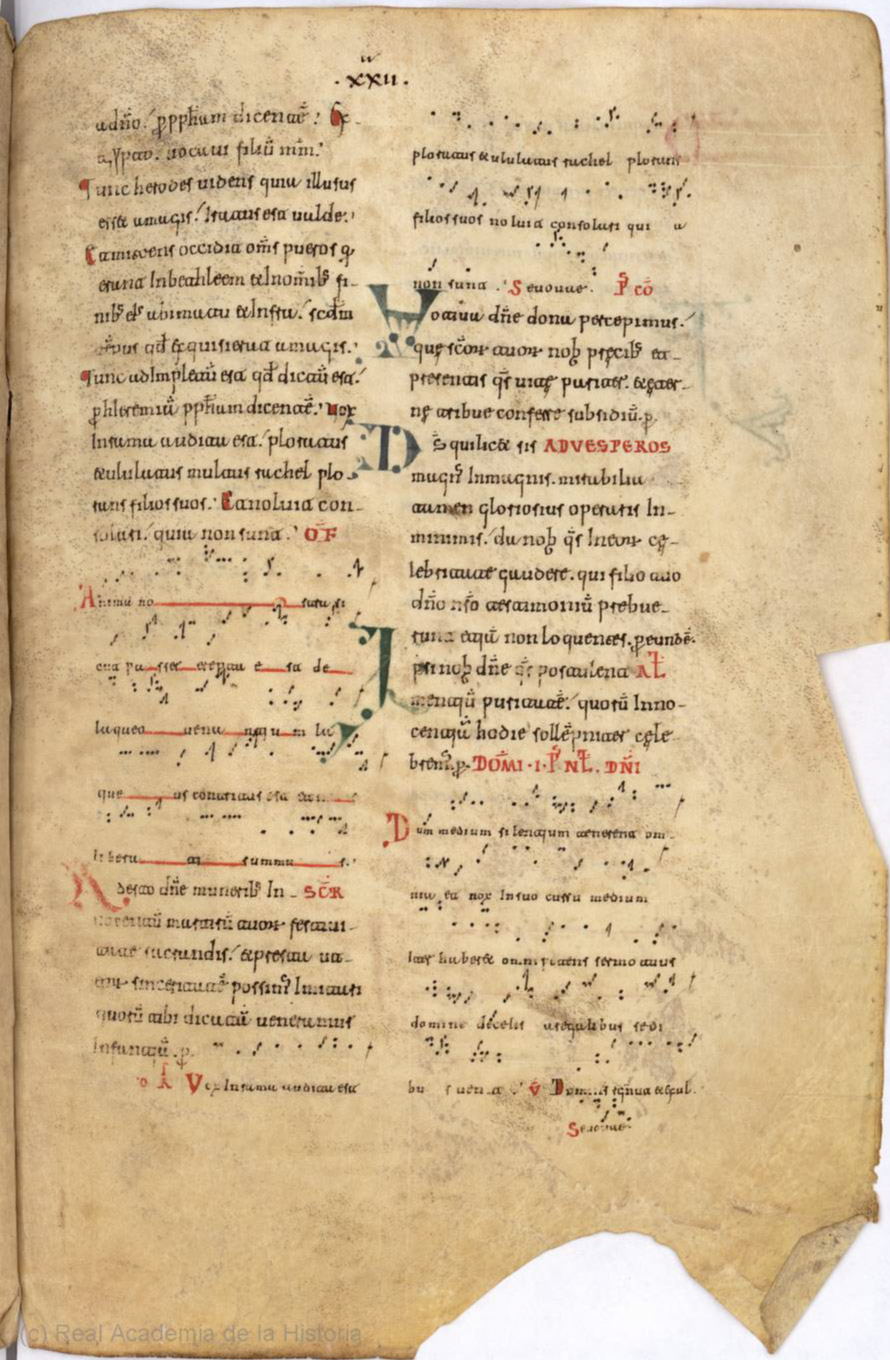 .xxii.
a dño. p pphetam dicentẽ. Ex
egypto. uocaui filiũ mm̃.
Tunc herodes uidens quia illusus
esset a magis. Iratus est ualde.
Et mittens occidit om̃s pueros q
erant In bethleem & In om̃ib; fi-
nib; ei' a bimatu & Infra. scdm
tẽpus qd exquisierat a magis.
Tunc adImpletũ est qd dictũ est
p hieremiã pphetam dicentẽ. uox
In rama audita est. ploratus
& ululatus multus rachel plo-
rans filios suos. Et noluit con-
solari. quia non sunt. OF
Anima no stra si
cut passer erepta e st a de
laqueo uena ntiu m la
que us contritus est et n
liberati sumus.
Adesto dñe muneribs In SCR
nocentũ martirũ tuorum festiui-
tate sacrandis. & presta ut
eorum sinceritatẽ possimus Imitari
quorũ tibi dicatũ ueneramur
Infantiũ. p.
Vox In rama audita est
ploratus & ululatus rachel plorans
filios suos noluit consolari quia
non sunt. Seuouae. P cõ
Votiua dñe dona percepimus.
que scõrum tuorum nob precib; et
presentis qs uite pariter. & eter-
ne tribue conferre subsidiũ. p.
Ds qui licet sis AD VESPEROS
magn' In magnis. mirabilia
tamen gloriosius operaris In
minimis. da nob qs In eorum ce-
lebritate gaudere. qui filio tuo
dño nr̃o testimoniũ prebue-
runt etiã non loquentes. p eundẽ.
Ipsi nob dñe qs postulent AL
mentiũ puritatẽ. quorũ Inno-
centiã hodie sollẽpniter cele
bram'. p. DOMI . I . P NL . DÑI
Dum medium silentium tenerent om
nia et nox In suo cursu medium
iter haberet omnipotens sermo tuus
domine de celis a regalibus sedi
bus uenit. V Dominus regnauit
Seuouae
(c) Real Academia de la Historia